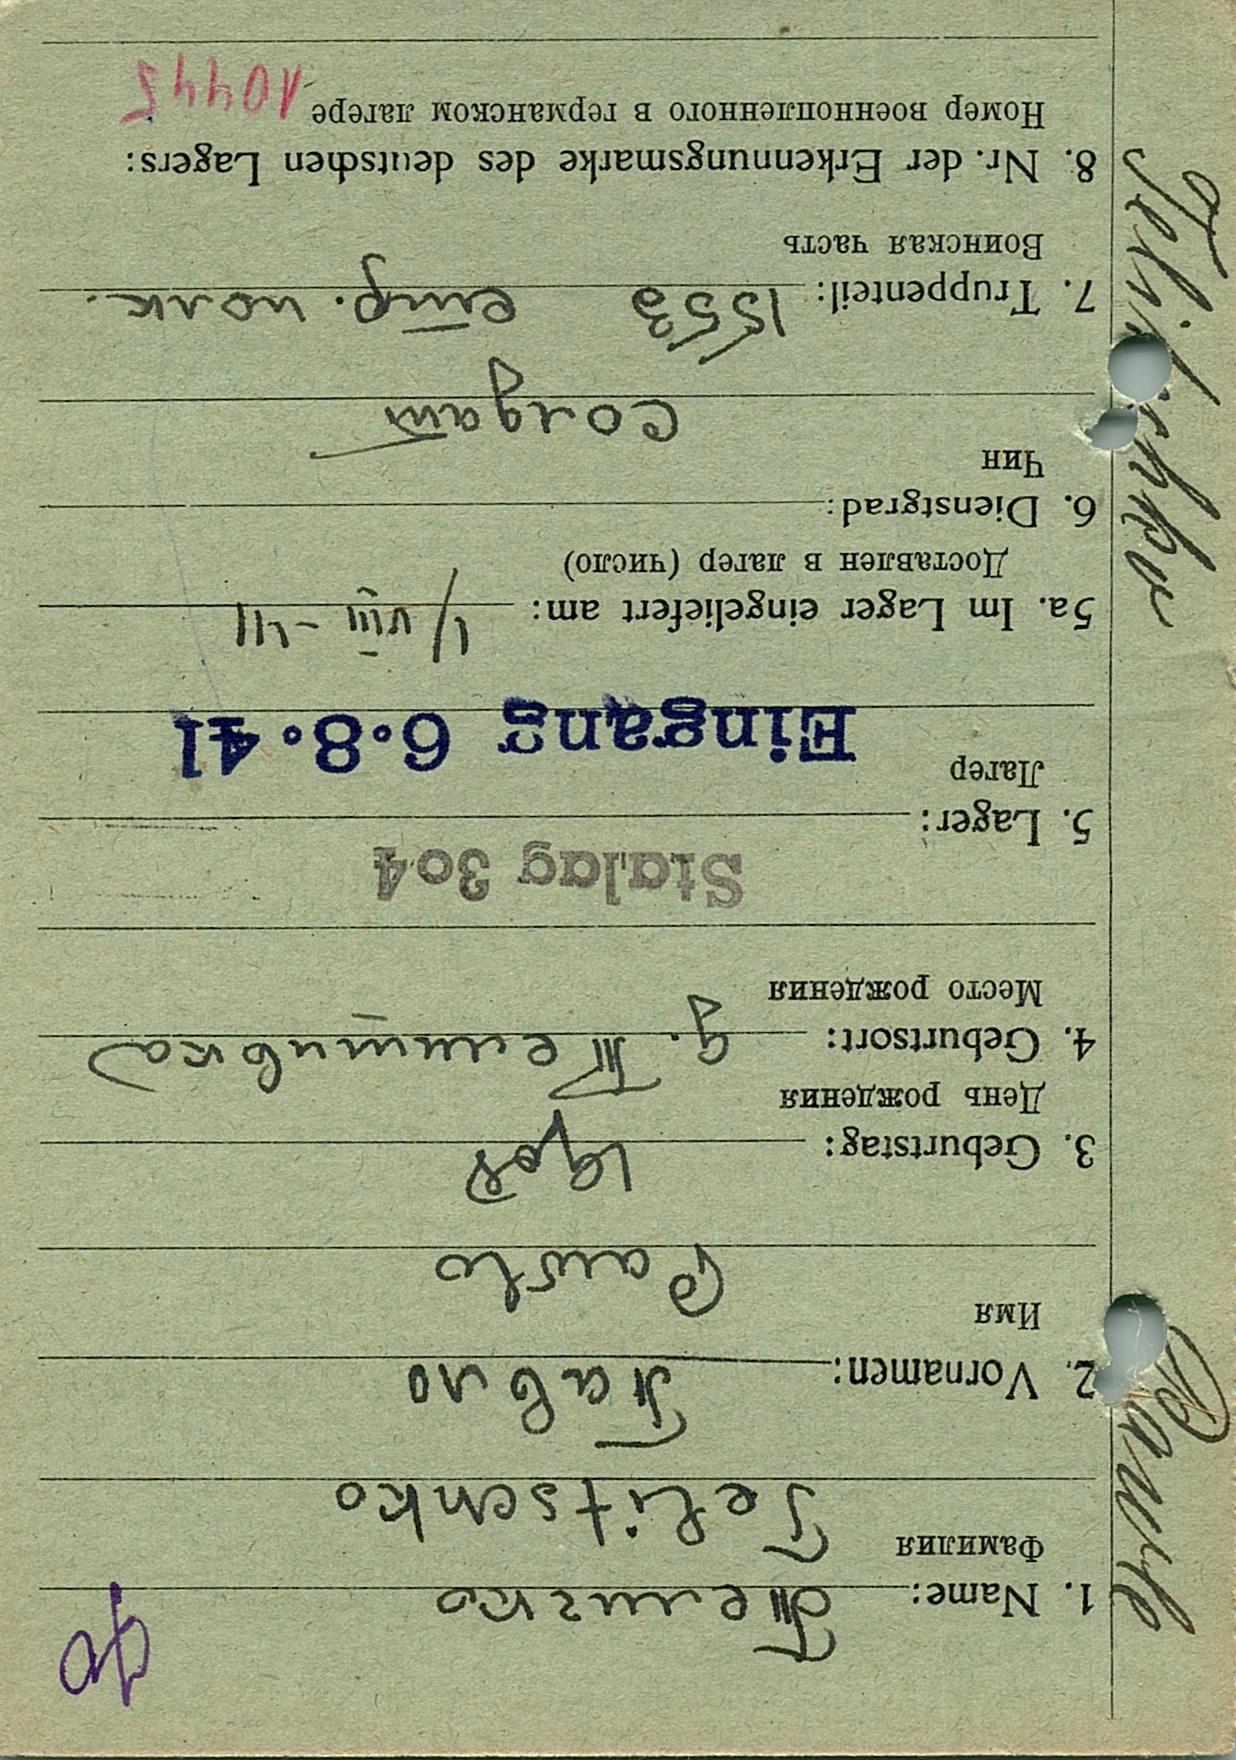 1. Name: Теличко
Фамилия
Telitschko
2. Vornamen: Павло
Имя
Pawlo
3. Geburtstag: 1908
День рождения
4. Geburtsort:
Место рождения
Stalag 304
5. Lager:
Лагер
Eingang 6.8.41
5a. Im Lager eingeliefert am: 1/VIII-41
Доставлен в лагер (число)
6. Dienstgrad:
Чин
солдат
7. Truppenteil: 1553 стр. полк.
Воинская часть
8. Nr. der Erkennungsmarke des deutschen Lagers:
Номер военнопленного в германском лагере 10445
Pawlo